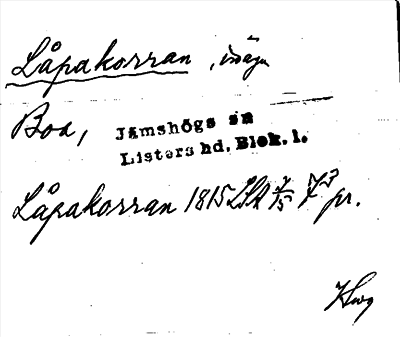 Låpakorran, inäga
Boa,
Jämshögs sn
Listers hd, Blek. l.
Låpakorran 1815 LSA pr.